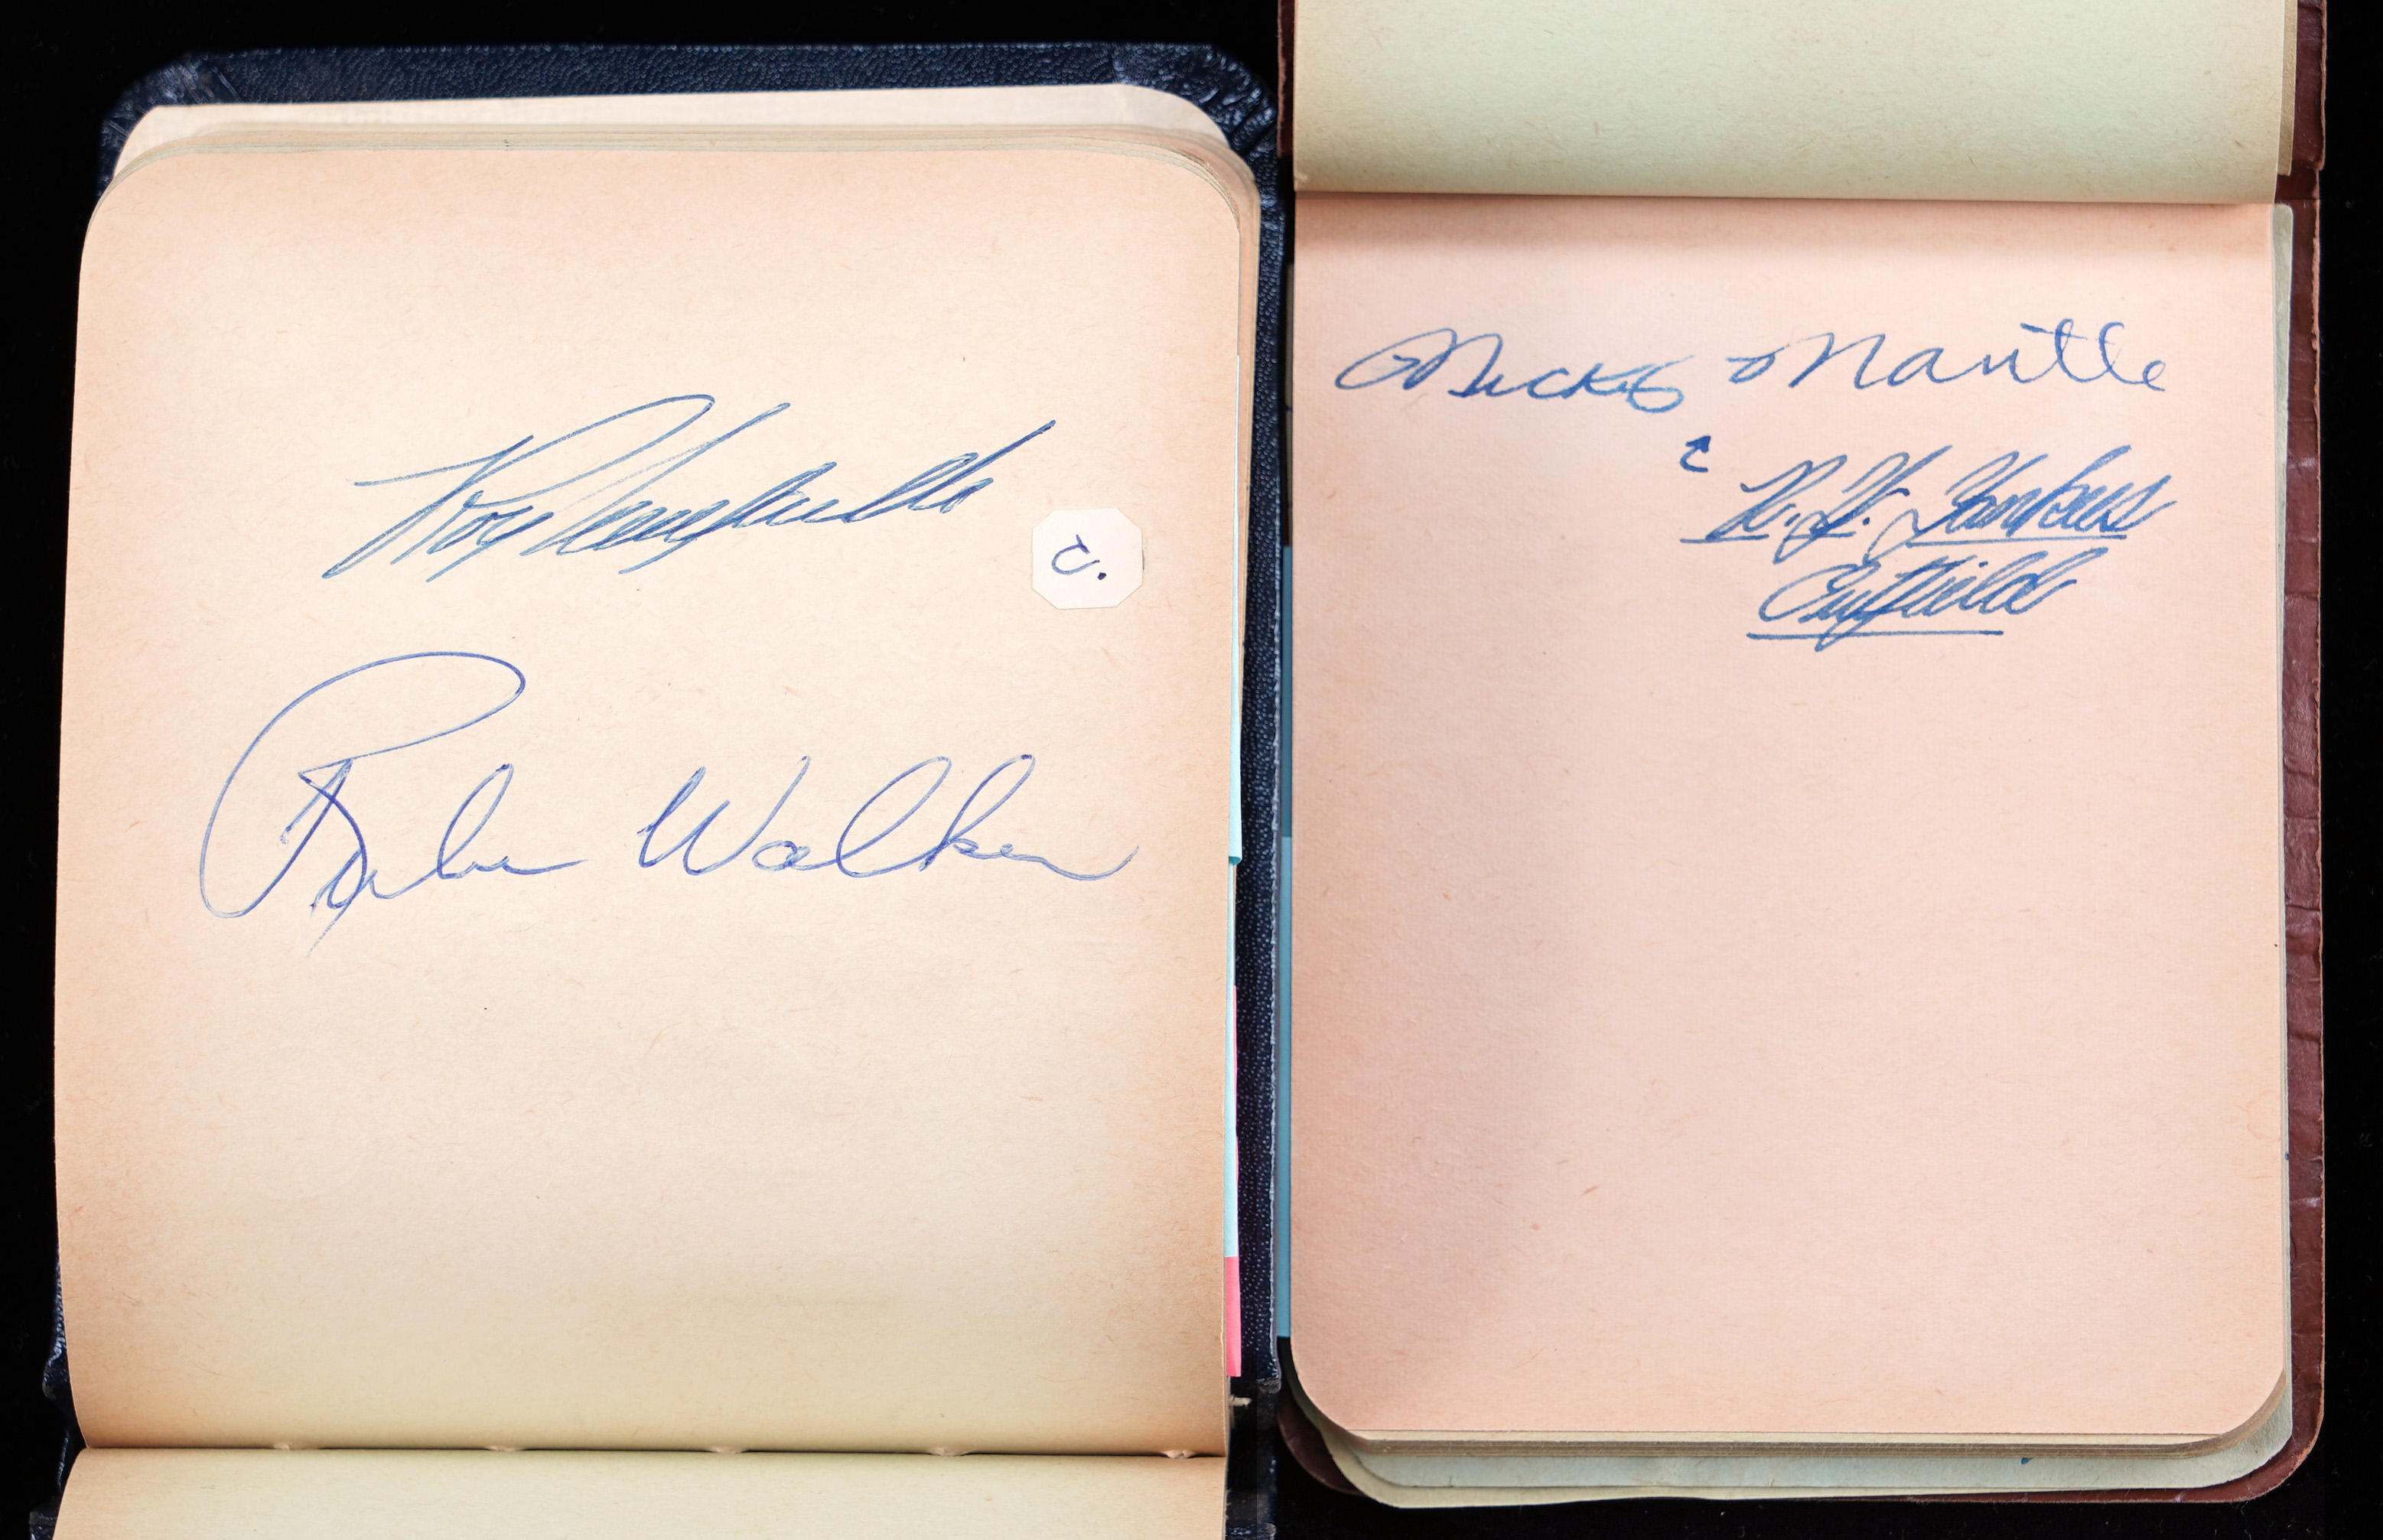 Roy Campanella
C.
Rube Walker
Mickey Mantle
C
N.Y. Yankees
Outfield